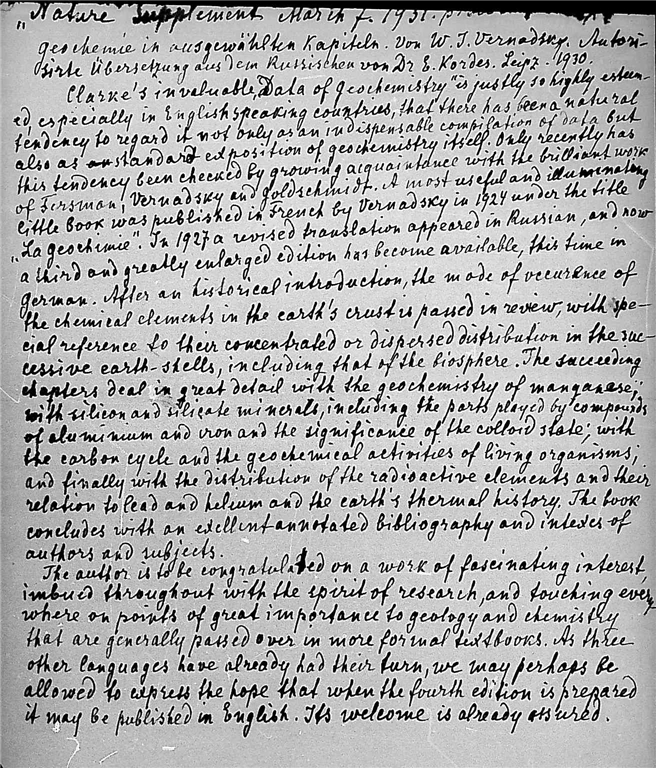 „Nature Supplement March 7. 1931.
Geochemie in ausgewählten Kapiteln. Von W. J. Vernadsky. Autori-
sirte Übersetzung aus dem Russischen von Dr E. Kordes. Leipz. 1930.
Clarke's invaluable „Data of Geochemistry" is justly so highly esteem-
ed, especially in English speaking countries, that there has been a natural
tendency to regard it not only as an indispensable compilation of data but
also as an standard exposition of geochemistry itself. Only recently has
this tendency been checked by growing acquaintance with the brilliant work
of Fersman, Vernadsky and Goldschmidt. A most useful and illuminating
little book was published in French by Vernadsky in 1924 under the title
„La geochimie". In 1927 a revised translation appeared in Russian, and now
a third and greatly enlarged edition has become available, this time in
German. After an historical introduction, the mode of occurence of
the chemical elements in the earth's crust is passed in review, with spe-
cial reference to their concentrated or dispersed distribution in the suc-
cessive earth-shells, including that of the biosphere. The succeeding
chapters deal in great detail with the geochemistry of manganese;
with silicon and silicate minerals, including the parts played by compounds
of aluminium and iron and the significance of the colloid state; with
the carbon cycle and the geochemical activities of living organisms;
and finally with the distribution of the radioactive elements and their
relation to lead and helium and the earth's thermal history. The book
concludes with an exellent annotated bibliography and intexes of
authors and subjects.
The author is to be congratulated on a work of fascinating interest,
imbued throughout with the spirit of research, and touching every
where on points of great importance to geology and chemistry
that are generally passed over in more formal textbooks. As three
other languages have already had their turn, we may perhaps be
allowed to express the hope that when the fourth edition is prepared
it may be published in English. Its welcome is already assured.